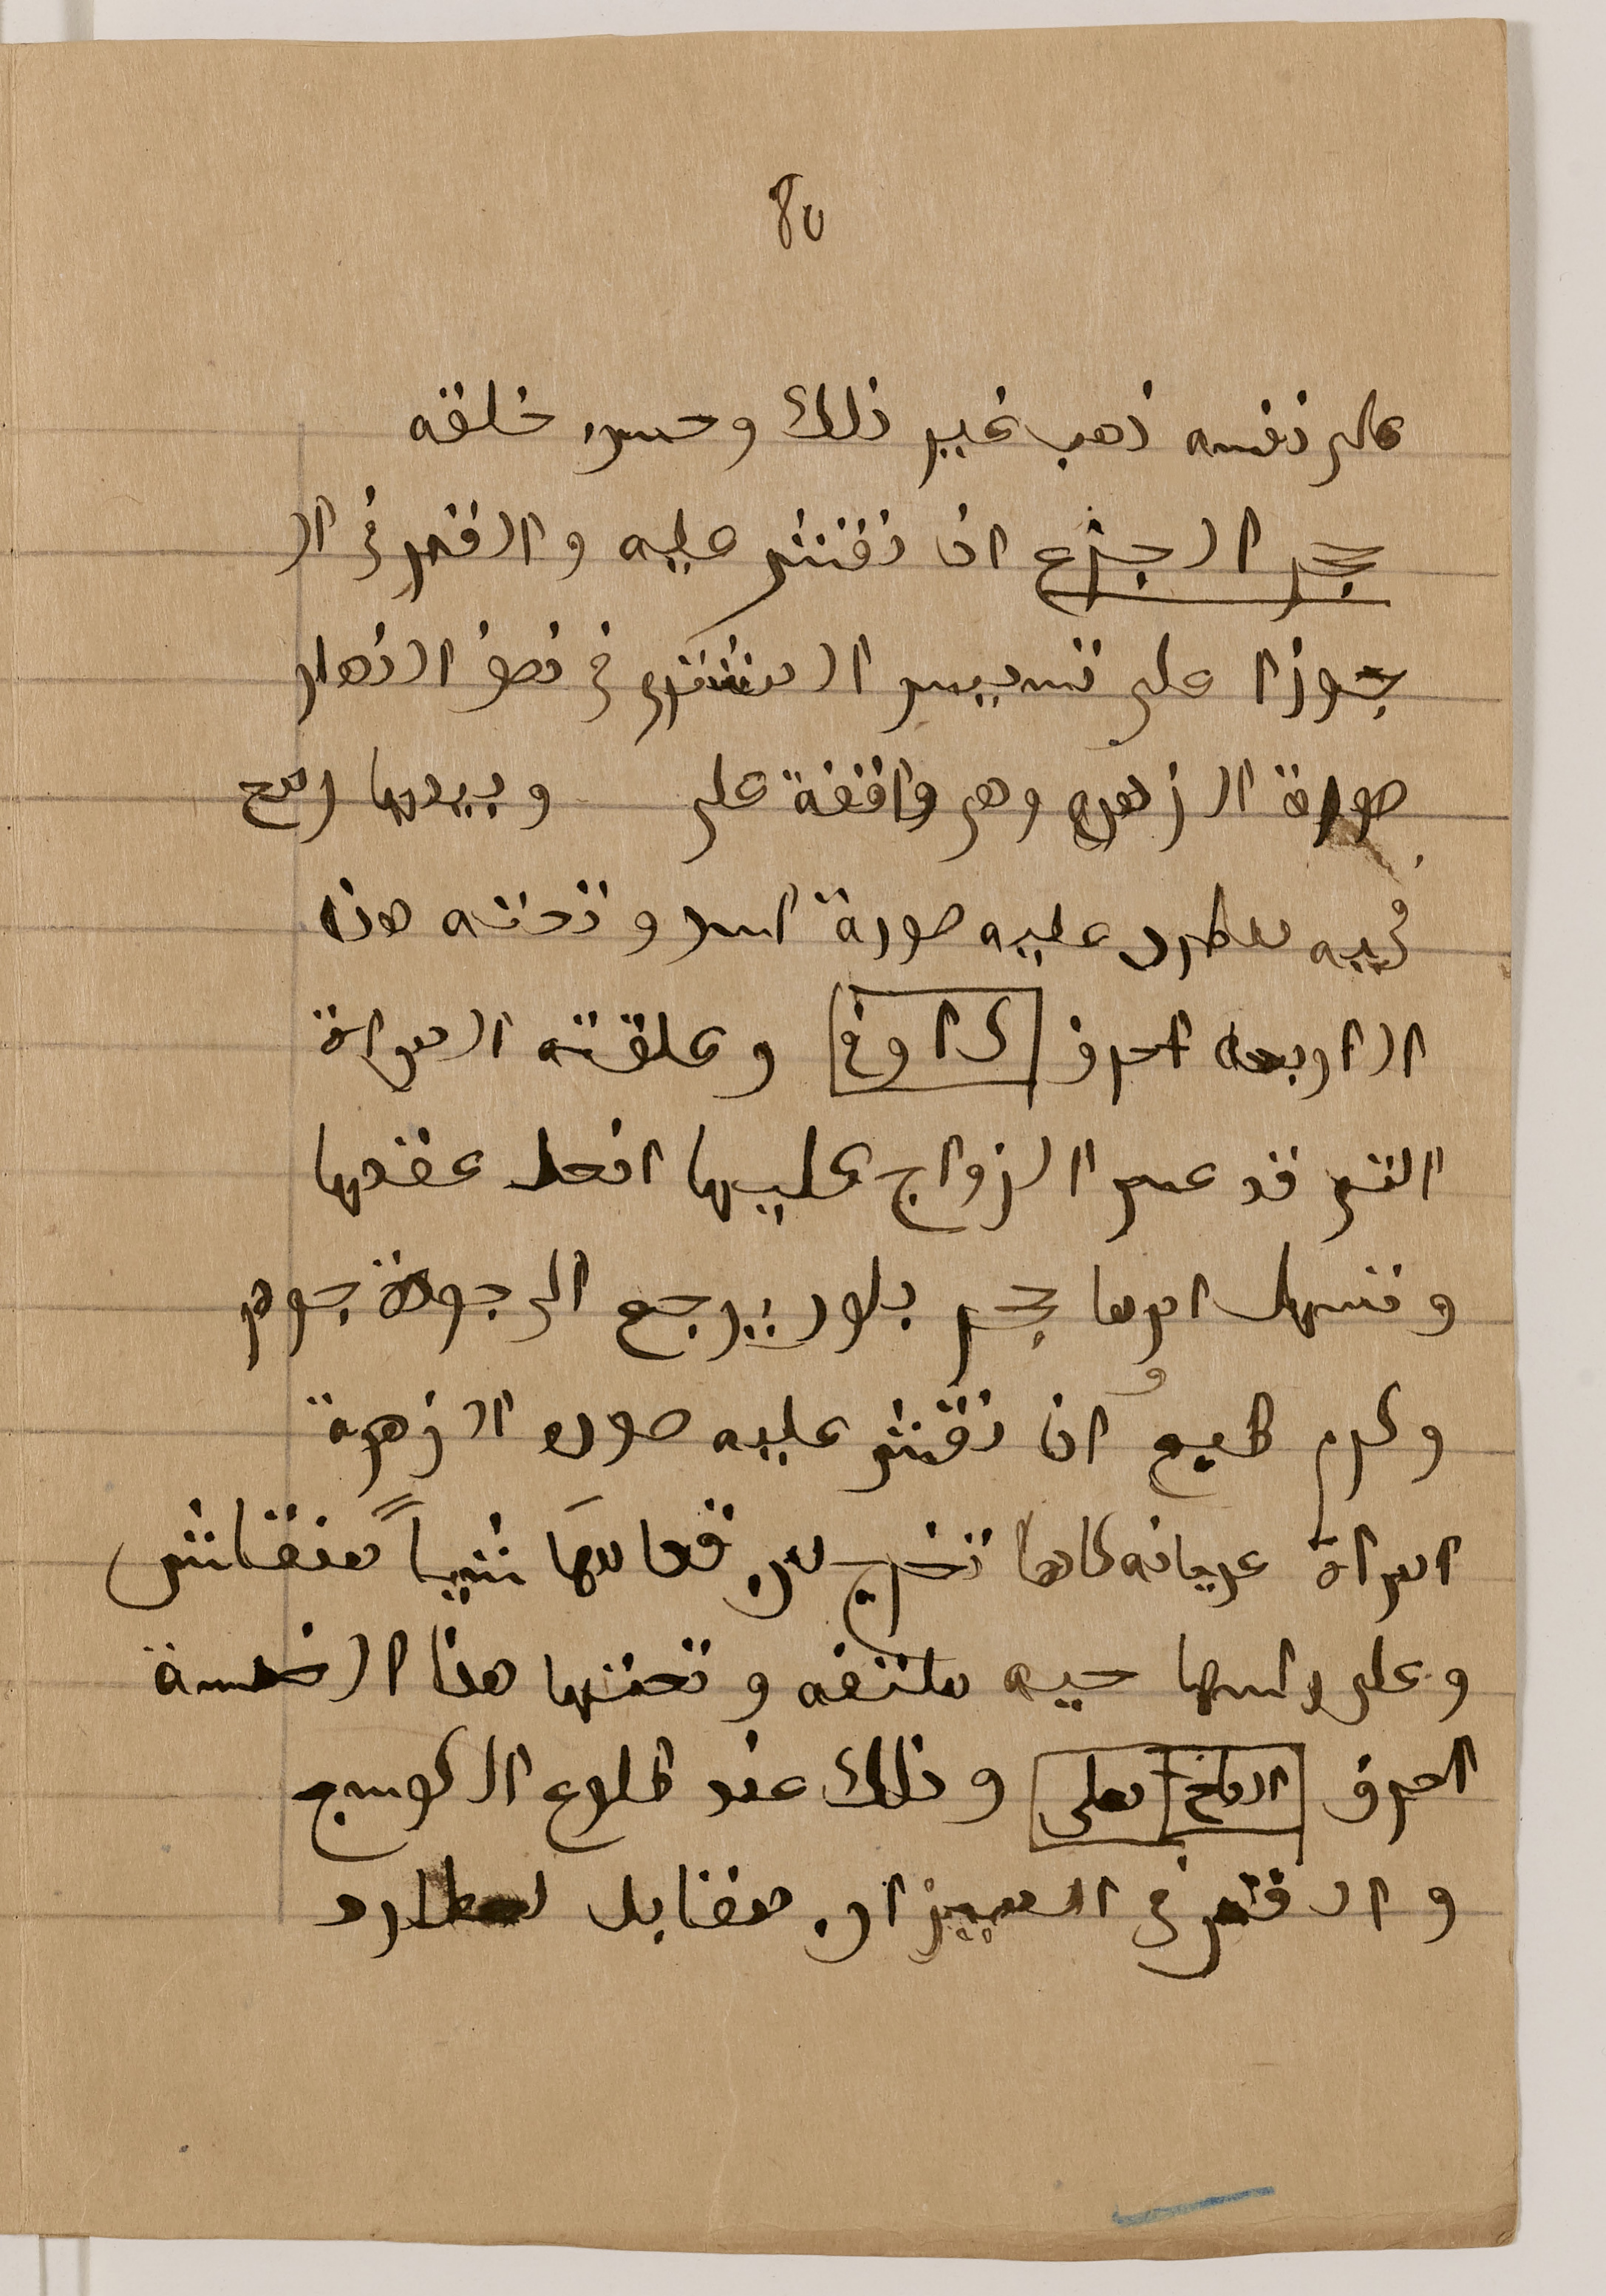 80
على نفسه ذهب غير ذلك وحسن خلقه
حجر الجزع ان نقش عليه والقمر في ال
جوزا على تسديس المشترى في نصف النهار
صورة الزهره وهى واقفة على وبيدها رمح
فيه مطرد عليه صورة اسد وتحته هذا
الاربعه احرف وعلقته المراة
التى قد عسر الزواج عليها انحل عقدها
وتسهل امرها حجر بلور يرجع الى جودة جوهر
وكرم طبع ان نقش عليه صوره الزهرة
امراة عريانه كانها تخرج من شياً منقاش
وعلى راسها حيه ملتفه وتحتها هذا الخمسة
احرف وذلك عند طلوع الكوسج
والقمر في الميزان مقابل لعطارد